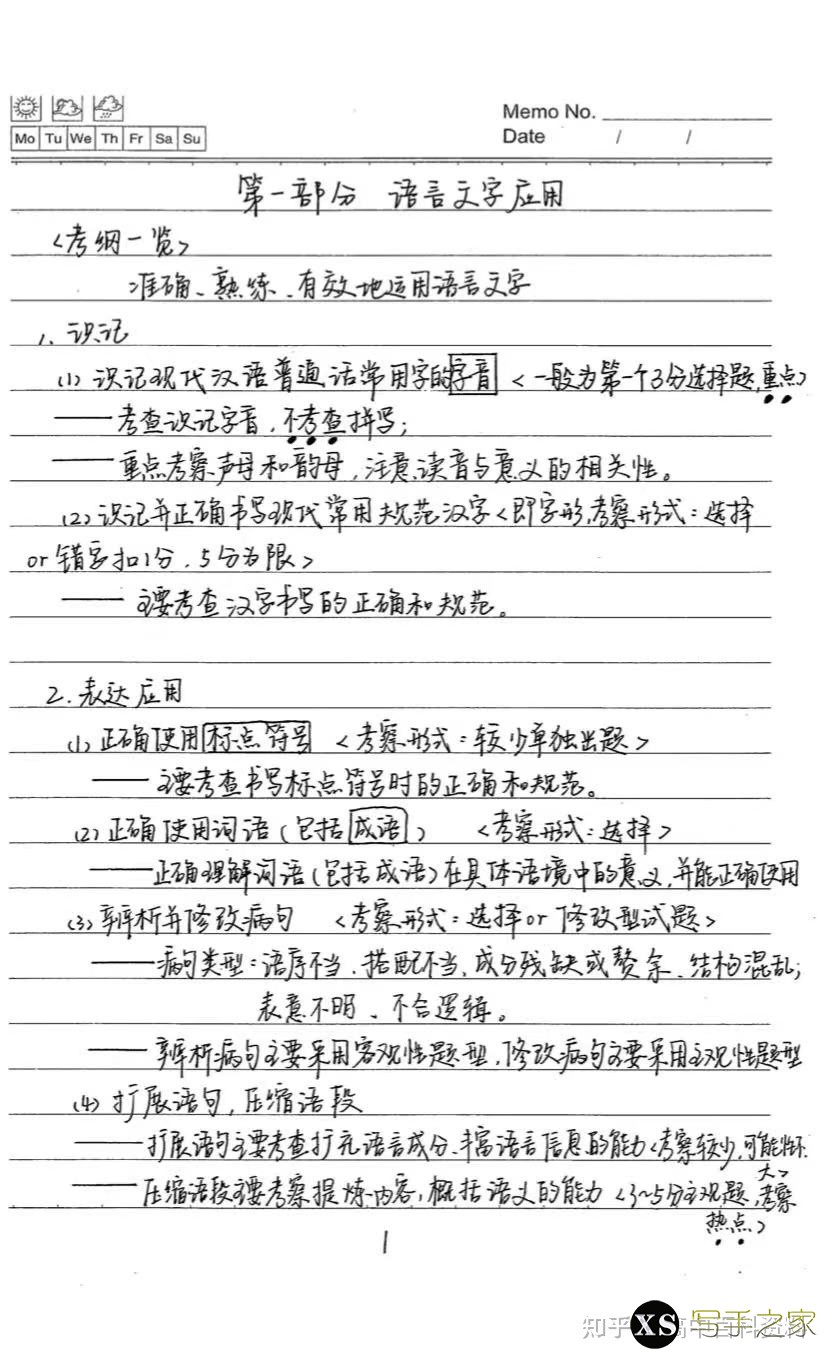 Memo No.
Mo Tu We Th Fr Sa Su
Date / /
第一部分 语言文字应用
<考纲一览>
准确、熟练、有效地运用语言文字
1、识记
(1) 识记现代汉语普通话常用字的字音 <一般为第一个3分选择题,重点>
——考查识记字音，不考查拼写；
——重点考察声母和韵母，注意读音与意义的相关性。
(2) 识记并正确书写现代常用规范汉字<即字形,考察形式：选择
or错字扣1分，5分为限>
——主要考查汉字书写的正确和规范。
2.表达应用
(1) 正确使用标点符号 <考察形式：较少单独出题>
——主要考查书写标点符号时的正确和规范。
(2) 正确使用词语(包括成语) <考察形式：选择>
——正确理解词语(包括成语)在具体语境中的意义，并能正确使用
(3) 辨析并修改病句 <考察形式：选择or修改型试题>
——病句类型：语序不当、搭配不当、成分残缺或赘余、结构混乱；
表意不明、不合逻辑。
——辨析病句主要采用客观性题型，修改病句主要采用主观性题型
(4) 扩展语句，压缩语段
——扩展语句主要考查扩充语言成分、丰富语言信息的能力<考察较少,可能性不
大>
——压缩语段主要考察提炼内容，概括语义的能力 <3~5分主观题,考察
热点>
1
知乎
XS 写手之家